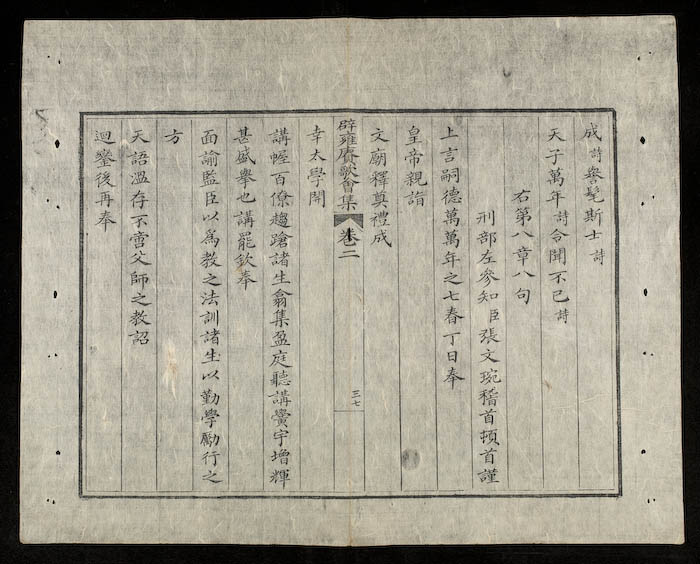 成詩譽髦斯士詩
天子萬年詩令聞不已詩
右第八章八句
刑部左參知臣張文琬稽首頓首謹
上言嗣德萬萬年之七春丁日奉
皇帝親詣
文廟釋奠禮成
辟雍賡歌會集 卷二 三七
幸太學開
講幄百僚趨蹌諸生翕集盈庭聽講黌宇增輝
甚盛舉也講罷欽奉
面諭監臣以爲教之法訓諸生以勤學勵行之
方
天語溫存不啻父師之教詔
迴鑾後再奉